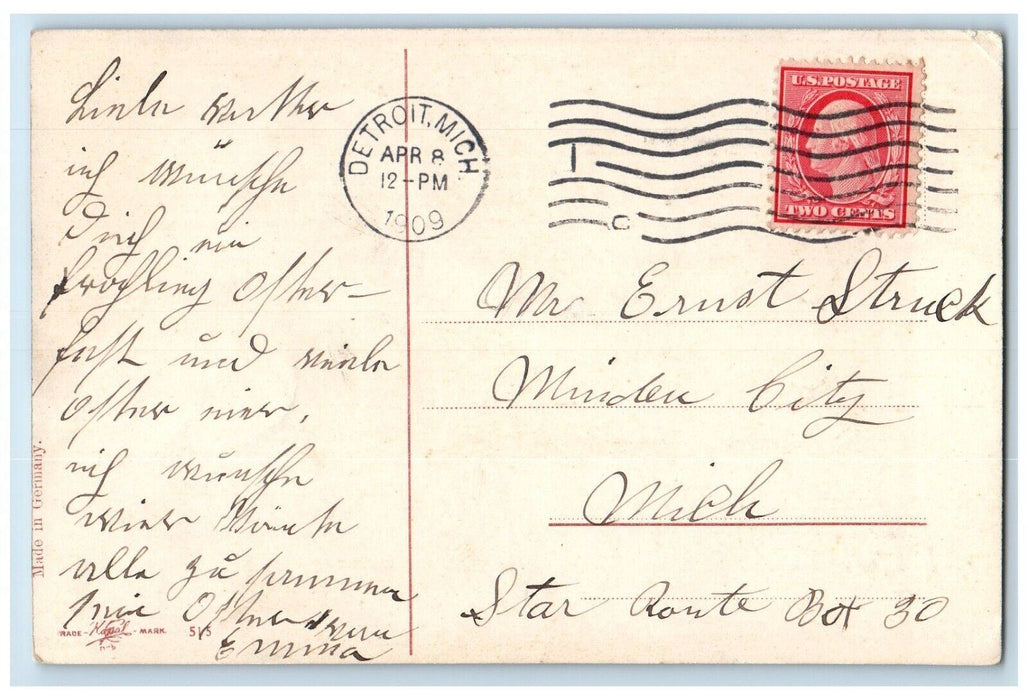 Liebe
ich wünsche
Dich ein
fröhling Oster-
fest und viele
Oster eier.
ich wünsche
alle zu sammen
Oster
Emma
Made in Germany.
TRADE - MARK. 515
DETROIT, MICH.
APR 8
12-PM
1909
1
C
U.S. POSTAGE
TWO CENTS
Mr Ernst Struck
Minden City
Mich
Star Route Box 30